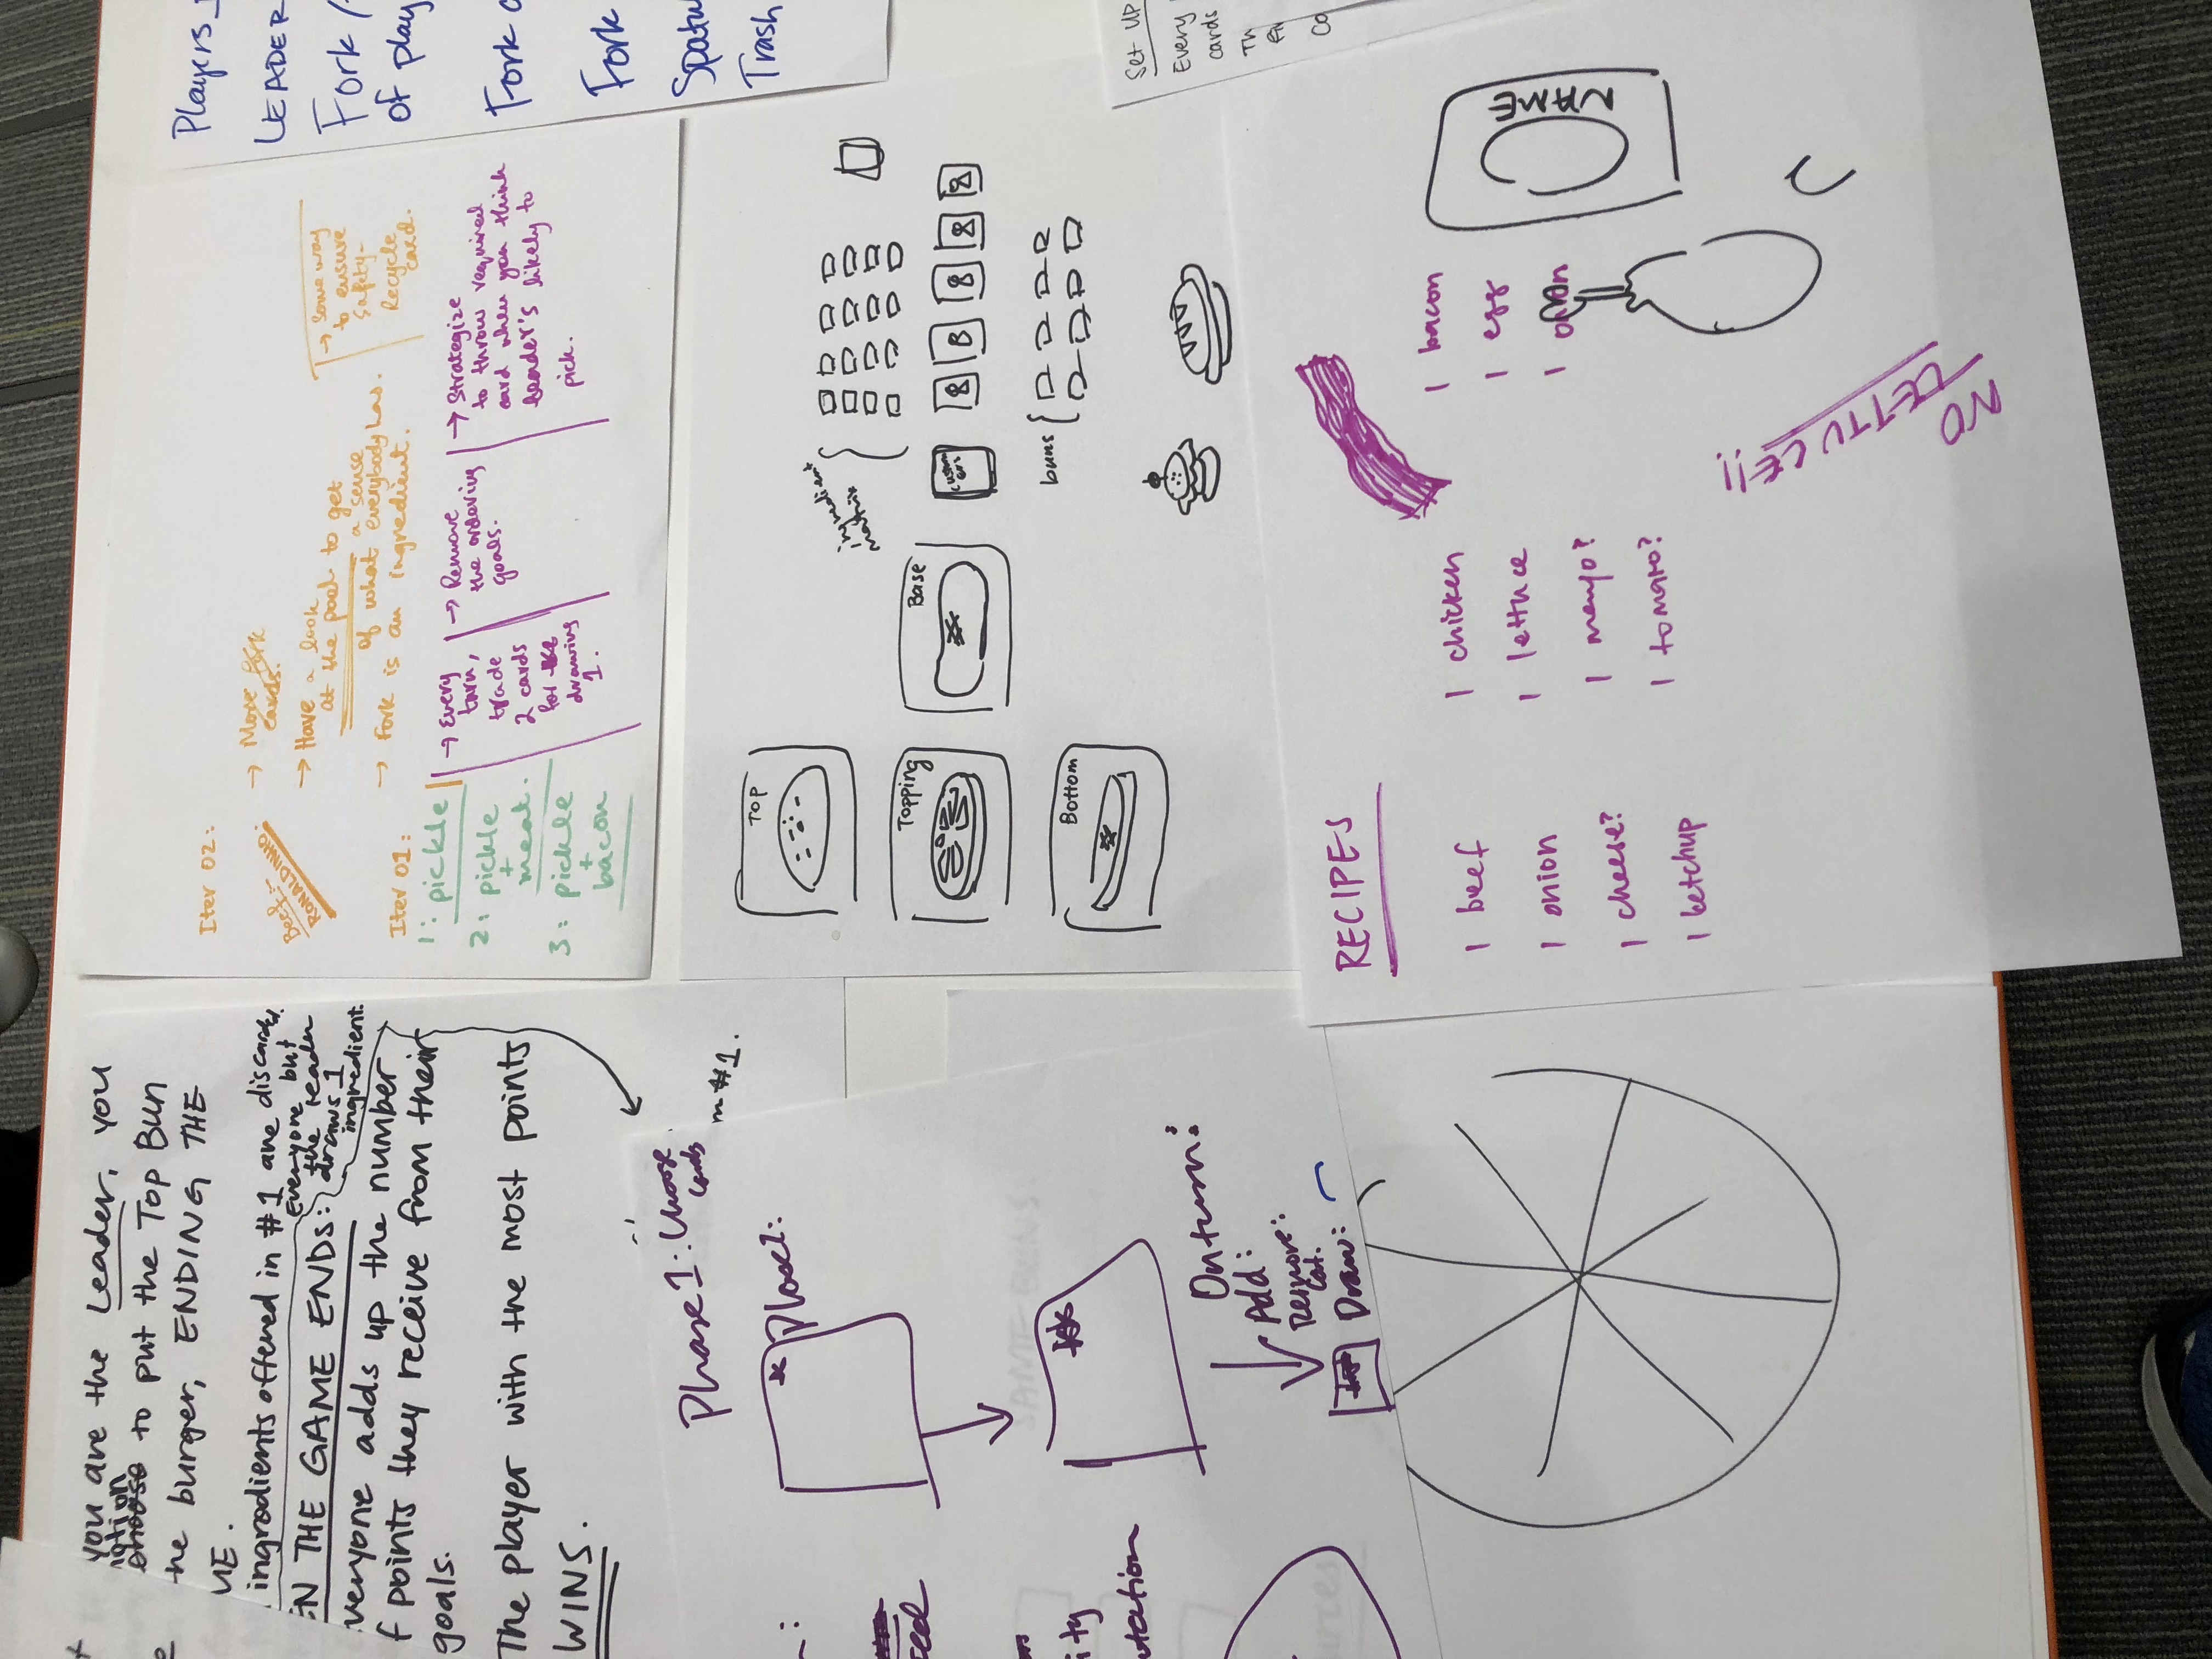 you are the Leader, you
choose to put the Top Bun
the burger, ENDING THE
ingredients offered in #1 are discarded.
Everyone but
the leader
draws 1
ingredient.
THE GAME ENDS:
everyone adds up the number
points they receive from their
goals.
The player with the most points
WINS.
Phase 1: Choose
cards
#1.
On turn:
Add:
Remove:
Draw:
Iter 02:
Beef:-
RONALDINHO.
→ More Fork
cards.
→ Have a look
at the pool to get
a sense
of what everybody has.
→ Fork is an ingredient.
→ Some way
to ensure
safety-
Recycle
card.
Iter 01:
1: pickle
2: pickle
+
meat.
3: pickle
+
bacon
→ Every
turn,
trade
2 cards
for
drawing
1.
→ Remove
the ordering
goals.
→ Strategize
to throw required
card when you think
leader's likely to
pick.
Players
LEADER
Fork
of play
Fork
Fork
Trash
Top
Topping
Base
Bottom
ingredient
matrix
buns
Set UP
Every
cards
RECIPES
1 beef
1 onion
1 cheese?
1 ketchup
1 chicken
1 lettuce
1 mayo?
1 tomato?
1 bacon
1 egg
1 onion
NAME
NO LETTUCE!!